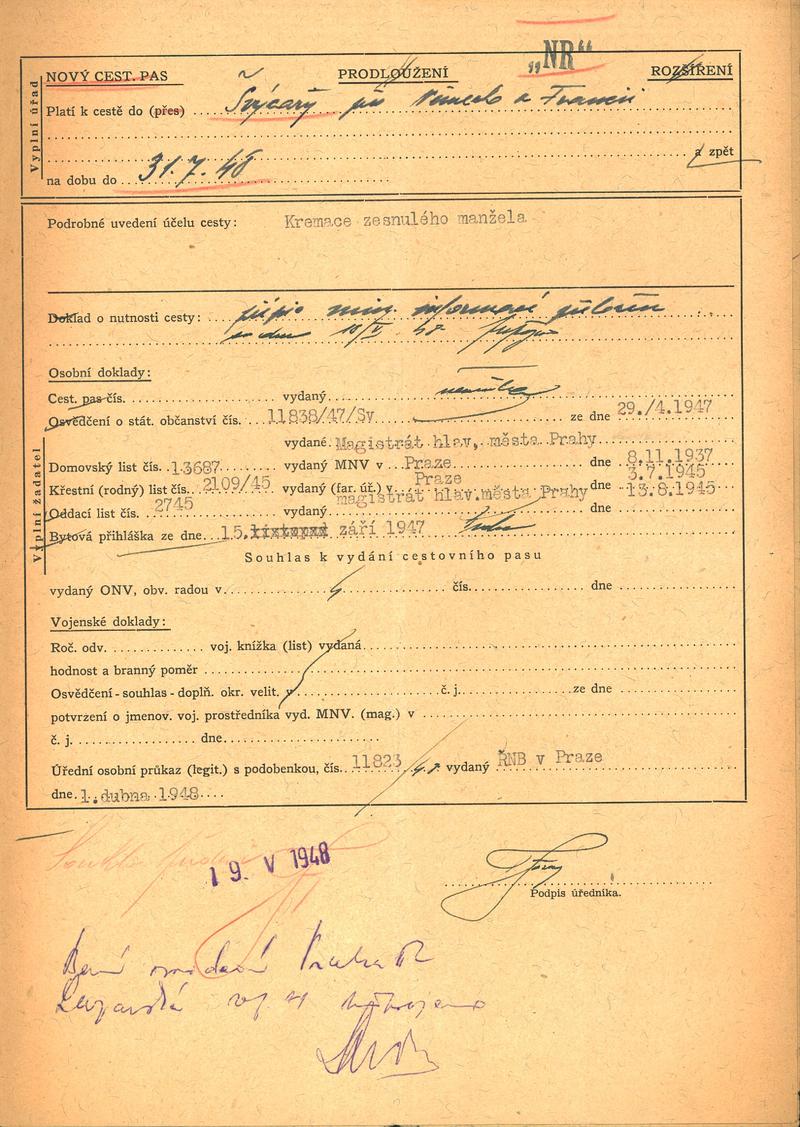 „NR“
NOVÝ CEST. PAS PRODLOUŽENÍ ROZŠÍŘENÍ
Vyplní úřad
Platí k cestě do (přes) Švýcarẏ Německo a Francii
a zpět
na dobu do 31.7.48
Podrobné uvedení účelu cesty: Kremace zesnulého manžela
Doklad o nutnosti cesty: přípis min. informací
ze dne 18/V 48
Osobní doklady:
Cest. pas čís. vydaný
Osvědčení o stát. občanství čís. 11838/47/Sv ze dne 29./4.1947
vydané Magistrát hlav. města Prahy
Vyplní žadatel
Domovský list čís. 13687 vydaný MNV v Praze dne 8.11.1937
Křestní (rodný) list čís. 2109/45 vydaný (far. úř.) Praze dne 3.7.1945
Oddací list čís. 2745 vydaný magistrát hlav.města Prahy dne 13.8.1945
Bytová přihláška ze dne 15.listopad září 1947
Souhlas k vydání cestovního pasu
vydaný ONV, obv. radou v čís. dne
Vojenské doklady:
Roč. odv. voj. knížka (list) vydaná
hodnost a branný poměr
Osvědčení-souhlas-doplň. okr. velit. v č. j. ze dne
potvrzení o jmenov. voj. prostředníka vyd. MNV. (mag.) v
č. j. dne
Úřední osobní průkaz (legit.) s podobenkou, čís. 11823/48 vydaný ŘNB v Praze
dne 1. dubna 1948
19. V 1948
Podpis úředníka.